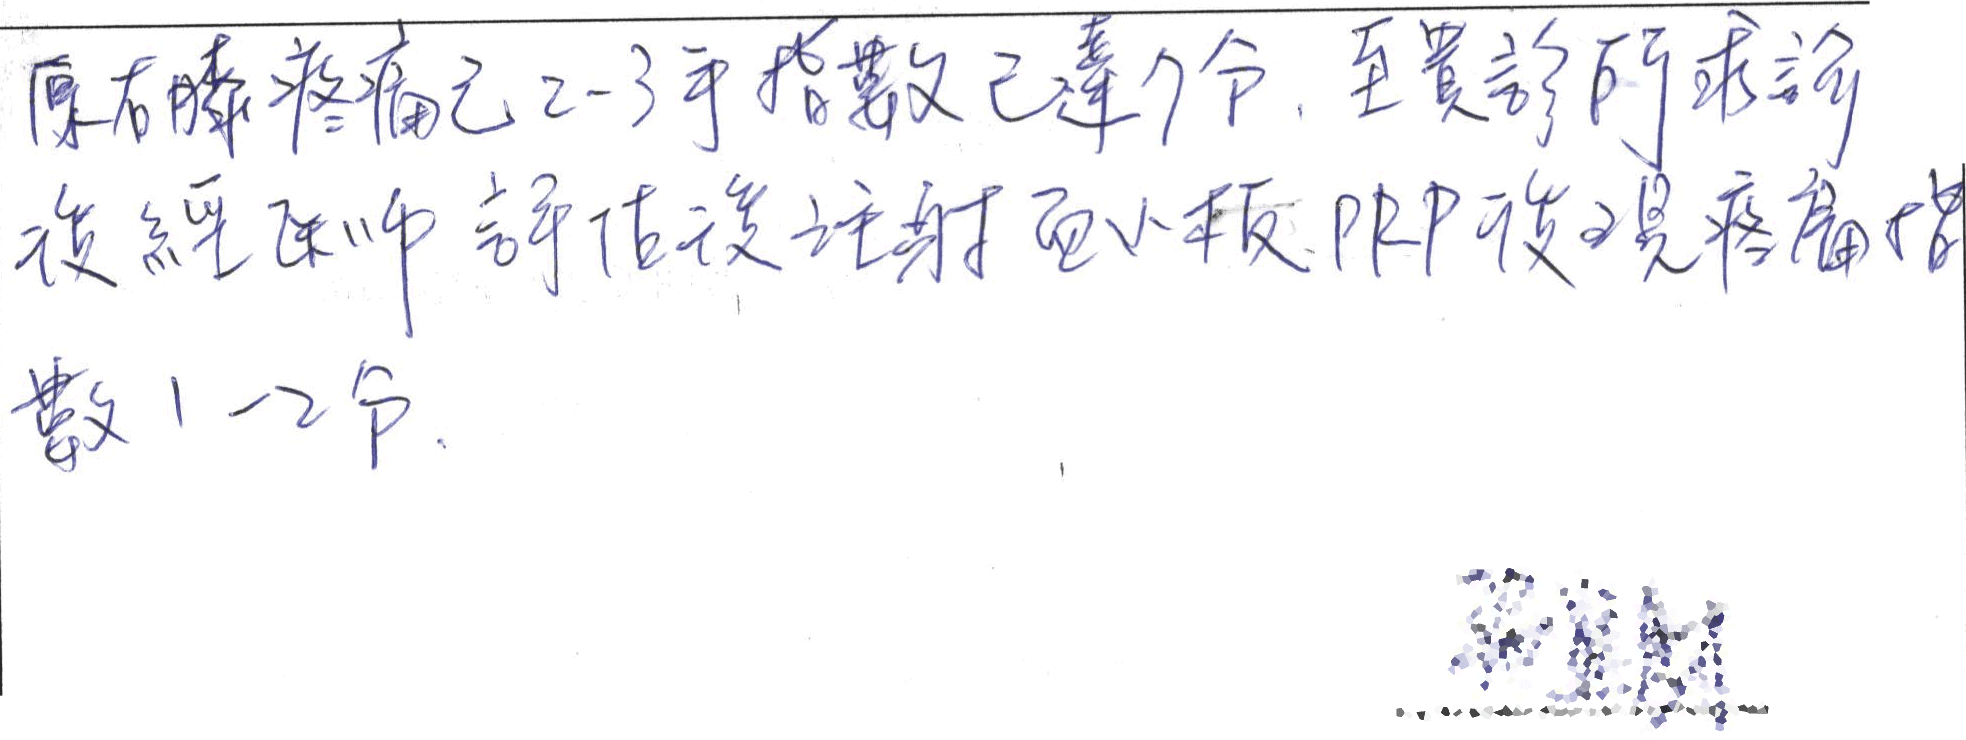 原右膝疼痛已2-3年指數已達7分.至貴診所求診
後經医師評估後注射血小板PRP後現疼痛指
數1-2分.